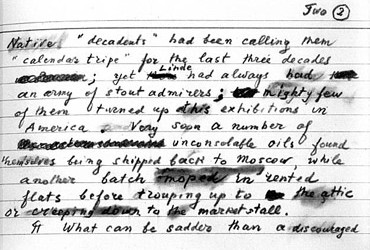 Two (2)
Native "decadents" had been calling them
"calendar tripe" for the last three decades
; yet Linde had always had
an army of stout admirers; mighty few
of them turned up at his exhibitions in
America. Very soon a number of
unconsolable oils found
themselves being shipped back to Moscow, while
another batch moped in rented
flats before trouping up to the attic
or creeping down to the marketstall.
¶ What can be sadder than a discouraged